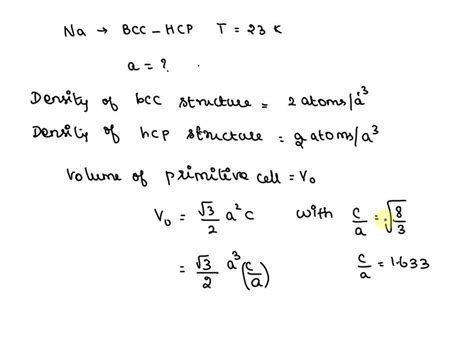 Na → BCC - HCP T = 23 K
a = ?
Density of bcc structure = 2 atoms/a³
Density of hcp structure = 2 atoms/a³
Volume of primitive cell = V₀
V₀ = √3/2 a² c with c/a = √8/3
= √3/2 a³ (c/a) c/a = 1.633